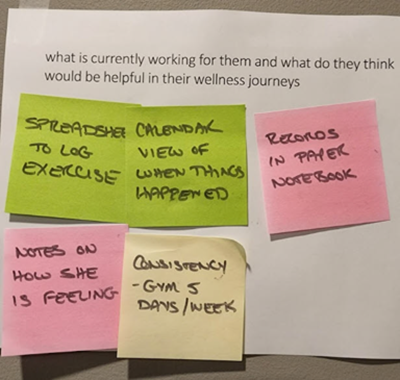 what is currently working for them and what do they think
would be helpful in their wellness journeys
SPREADSHEE
TO LOG
EXERCISE
CALENDAR
VIEW OF
WHEN THINGS
HAPPENED
RECORDS
IN PAPER
NOTEBOOK
NOTES ON
HOW SHE
IS FEELING
CONSISTENCY
-GYM 5
DAYS/WEEK